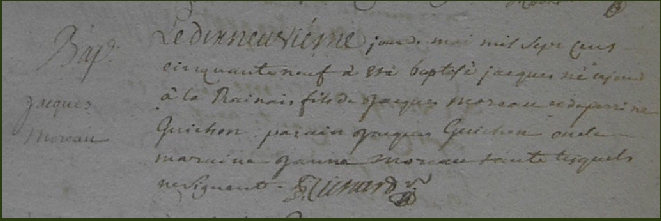 Bap.
jacques
moreau
Le dixneuvieme jour de mai mil sept cens
cinquante neuf a été baptisé jacques né ce jour
à la Rainais fils de jacques moreau et de perrine
Guichon parain jacques Guichon oncle
maraine janne moreau tante lesquels
ne signent.